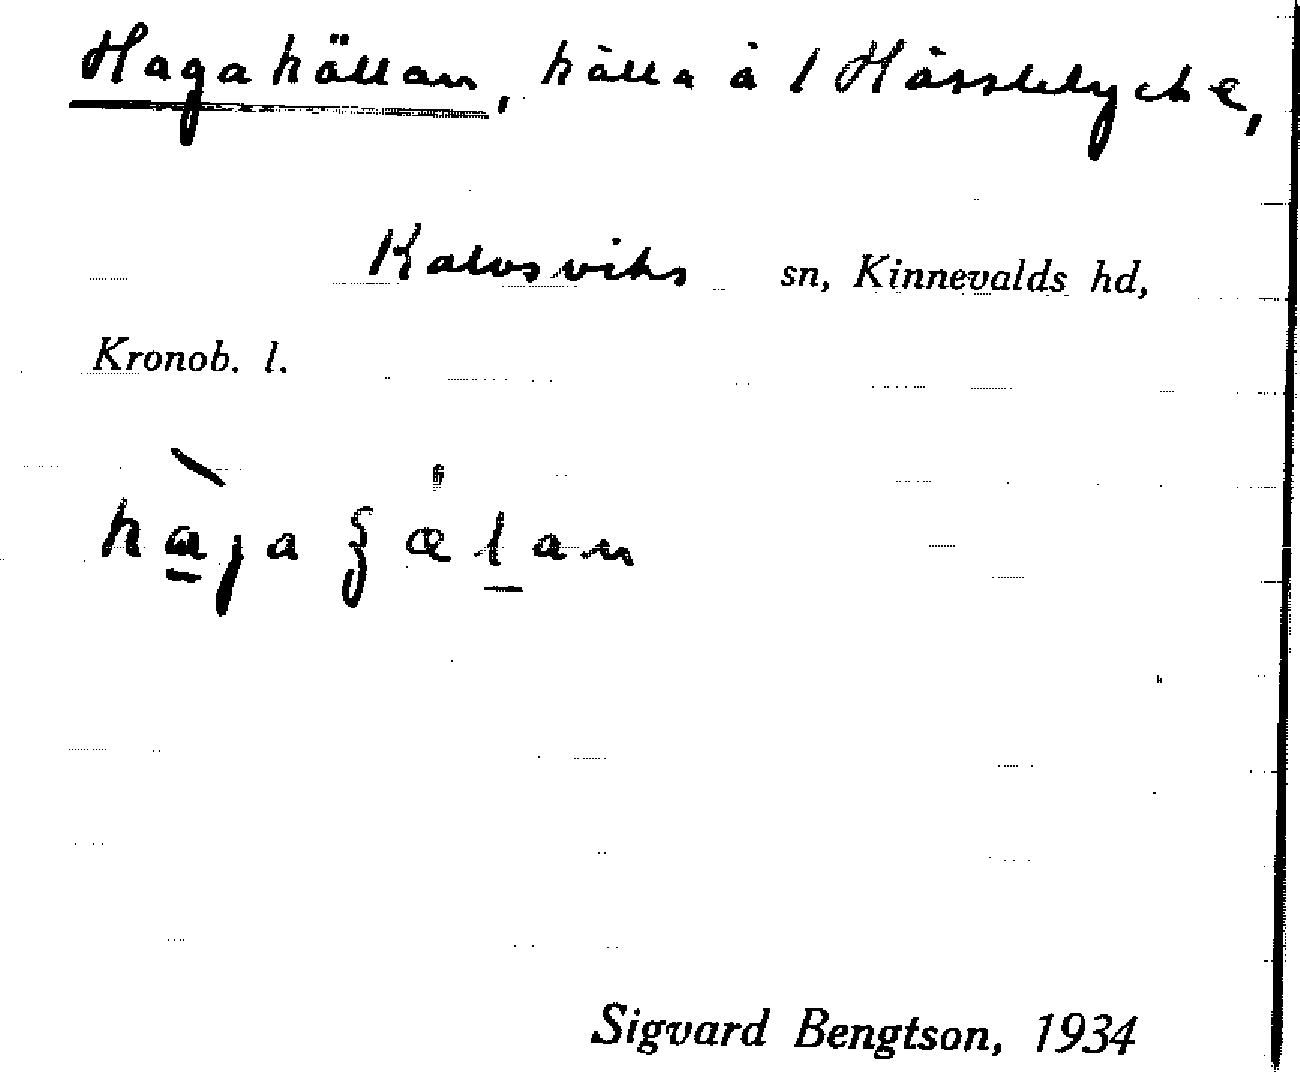 Hagakällan, källa å 1 Hässlelycke,
Kalvsviks sn, Kinnevalds hd,
Kronob. l.
Sigvard Bengtson, 1934